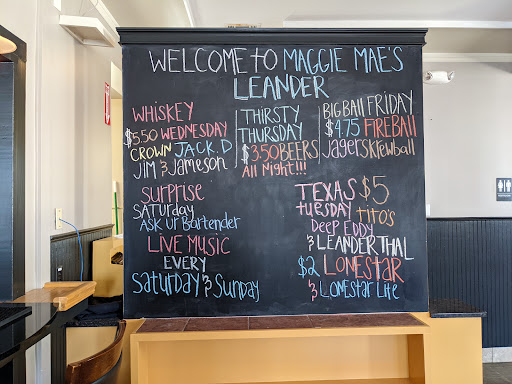 WELCOME TO MAGGIE MAE'S
LEANDER
WHISKEY
$5.50 WEDNESDAY
CROWN JACK. D
JIM & JAMESON
THIRSTY
THURSDAY
$3.50 BEERS
All Night!!!
BIG BALL FRIDAY
$4.75 FIREBALL
Jager Skrewball
SURPRISE
SATURDAY
ASK UR BARTENDER
LIVE MUSIC
EVERY
SATURDAY & SUNDAY
TEXAS $5
TUESDAY TITO'S
DEEP EDDY
& LEANDERTHAL
$2 LONESTAR
& LONESTAR LITE